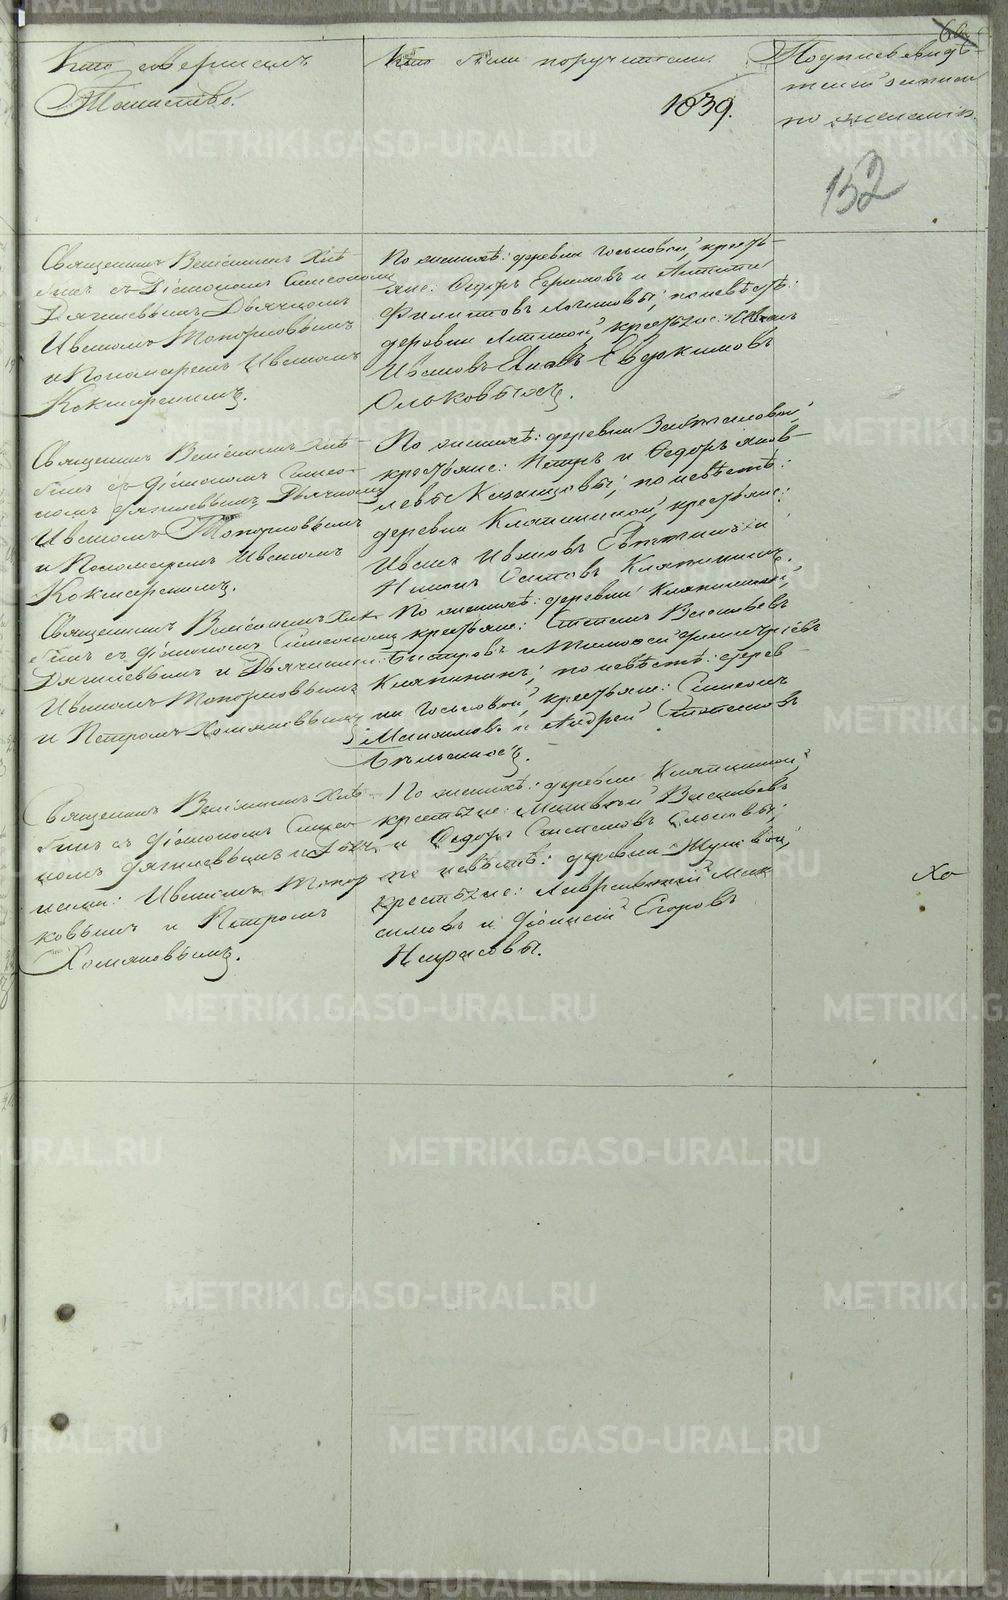 Кто совершалъ
Таинство.
Кто были поручители.
1839.
Подписьсвидѣ-
телей записи
по желанію.
152
Священникъ Веніаминъ Хлѣ-
бинъ съ Діакономъ Симеономъ
Дягилевымъ Дьячкомъ
Иваномъ Топорковымъ
и Пономаремъ Иваномъ
Кокшаренимъ.
По женихѣ: деревни Госьковой, кресть-
яне: Ѳедоръ Ермиловъ и
Филиповъ; по невѣстѣ:
деревни крестьяне: Иванъ
Ивановъ Яковъ Евдокимовъ
Ольковыхъ.
Священникъ Веніаминъ Хлѣ-
бинъ съ Діакономъ Симео-
номъ Дягилевымъ Дьячкомъ
Иваномъ Топорковымъ
и Пономаремъ Иваномъ
Кокшаренимъ.
По женихѣ: деревни
крестьяне: Петръ и Ѳедоръ Яков-
левы по невѣстѣ:
деревни Кляпининой, крестьяне:
Иванъ Ивановъ и
Осиповъ Кляпининъ.
Священникъ Веніаминъ Хлѣ-
бинъ съ Діакономъ Симеономъ
Дягилевымъ и Дьячками:
Иваномъ Топорковымъ
и Петромъ Хомяковымъ
По женихѣ: деревни Кляпининой,
крестьяне: Степанъ Васильевъ
Быстровъ и Тимоѳей Димитріевъ
Кляпининъ; по невѣстѣ: дерев-
ни Госьковой, крестьяне: Симеонъ
и Андрей Степановъ
Священникъ Веніаминъ Хлѣ-
бинъ съ Діакономъ Симео-
номъ Дягилевымъ и Дьяч-
ками: Иваномъ Топор
ковымъ и Петромъ
Хомяковымъ.
По женихѣ: деревни Кляпининой,
крестьяне: Матвѣй Васильевъ
и Ѳедоръ Степановъ
по невѣстѣ: деревни
крестьяне: Лаврентій Мак
симовъ и Діонисій Егоровъ
Некрасовы.
METRIKI.GASO-URAL.RU